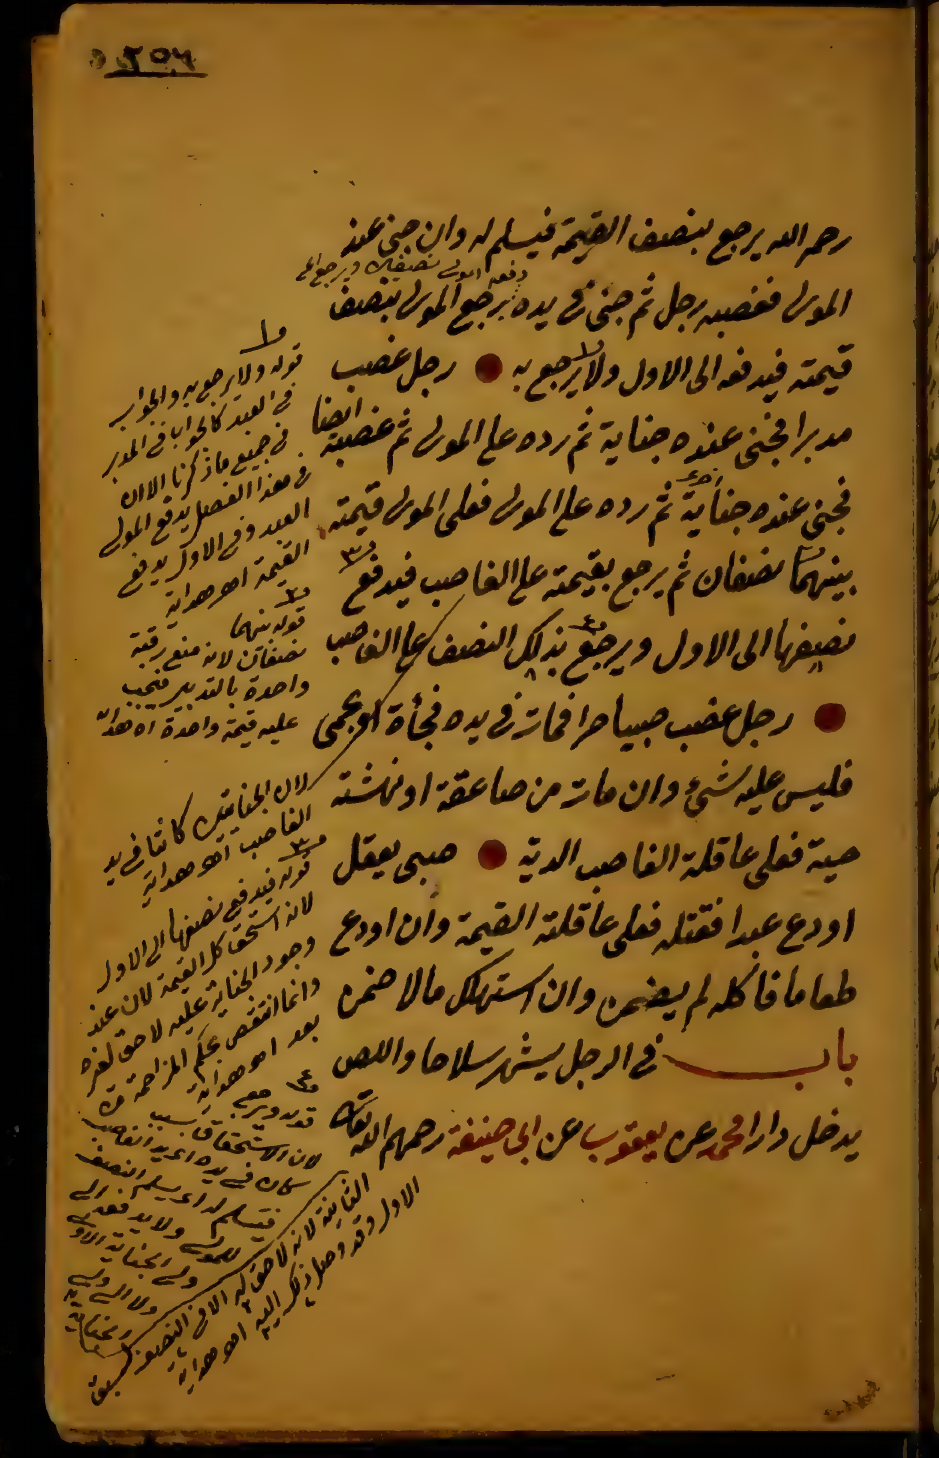 ٢٥٦
رحمه الله يرجع بنصف القيمة فيسلم له وان جنى عند
دفعه المولى نصفين ويرجع
المولى فغصبه رجل ثم جنى فى يده يرجع المولى بنصف
قيمته فيدفعه الى الاول ولا يرجع به رجل غصب
مدبرا فجنى عنده جناية ثم رده على المولى ثم غصبه ايضا
فجنى عنده جناية ثم رده على المولى فعلى المولى قيمته
بينهما نصفان ثم يرجع بقيمته على الغاصب فيدفع
نصفها الى الاول ويرجع بذلك النصف على الغاصب
رجل غصب صبيا حرا فمات فى يده فجأة او بحمى
فليس عليه شئ وان مات من صاعقة او نهشته
حية فعلى عاقلة الغاصب الدية صبى يعقل
اودع عبدا فقتله فعلى عاقلته القيمة وان اودع
طعاما فاكله لم يضمن وان استهلك مالا ضمن
باب فى الرجل يشهر سلاحا واللص
يدخل دارا محمد عن يعقوب عن ابى حنيفة رحمهم الله
قوله ولا يرجع به والجواب
فى العبد كالجواب فى المدبر
فى جميع ما ذكرنا الا ان
فى هذا الفصل يدفع المولى
العبد وفى الاول يدفع
القيمة اهـ هداية
قوله بينهما
نصفان لانه منع رقبة
واحدة بالتدبير فيجب
عليه قيمة واحدة اه هداية
لان الجنايتين كانتا فى يد
الغاصب اهـ هداية
قوله فيدفع نصفها الى الاول
لانه استحق كل القيمة لان عند
وجود الجناية عليه لا حق لغيره
وانما انتقص بحكم المزاحمة من
بعد اهـ هداية
قوله ويرجع
لان الاستحقاق بسبب
كان فى يده اى يد الغاصب
فيسلم له اى يسلم النصف
للمولى ولا يدفعه الى
ولى الجناية الاولى
ولا الى ولى
الجناية
الثانية لانه لا حق له الا فى النصف لسبق
الاول وقد وصل ذلك اليه اهـ هداية